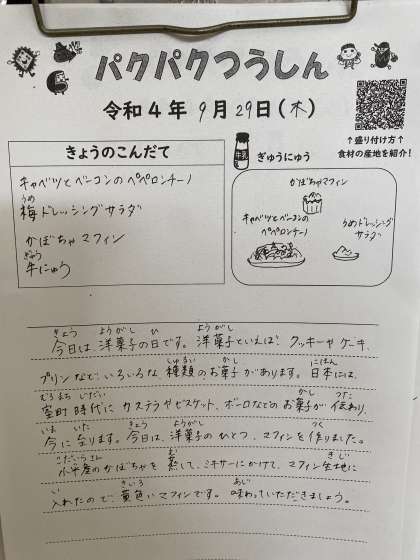 パクパクつうしん
令和4年 9月 29日(木)
↑盛り付け方↑
食材の産地を紹介!
きょうのこんだて
キャベツとベーコンのペペロンチーノ
うめ
梅ドレッシングサラダ
かぼちゃマフィン
ぎゅう
牛にゅう
牛乳
ぎゅうにゅう
かぼちゃマフィン
キャベツとベーコンの
ペペロンチーノ
うめドレッシング
サラダ
きょう ようがし ひ ようがし
今日は 洋菓子の日です。洋菓子といえば? クッキーやケーキ、
しゅるい かし にほん
プリンなど、いろいろな 種類のお菓子があります。日本には、
むろまちじだい かし つた
室町時代に カステラやビスケット、ボーロなどのお菓子が 伝わり、
いま いた きょう ようがし つく
今に至ります。今日は、洋菓子のひとつ、マフィンを作りました。
こだいらさん む きじ
小平産のかぼちゃを 蒸して、ミキサーにかけて、マフィン生地に
い きいろ あじ
入れたので、黄色いマフィンです。味わっていただきましょう。